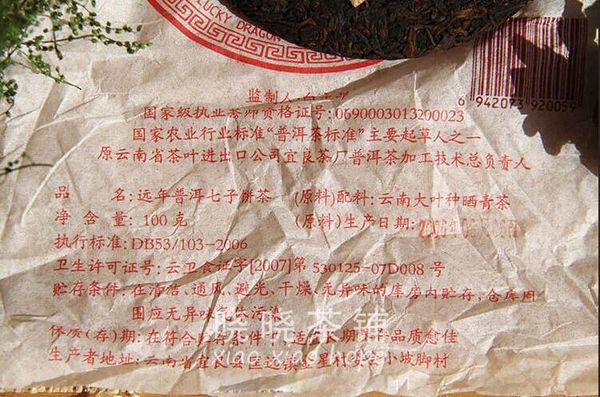 LUCKY DRAGON
监制人
国家级执业 资格证号:0690003013200023
国家农业行业标准“普洱茶标准”主要起草人之一
原云南省茶叶进出口公司宜良茶厂普洱茶加工技术总负责人
品 名:远年普洱七子饼茶 (原料)配料:云南大叶种晒青茶
净 含 量:100克 (原料)生产日期:
执行标准:DB53/103-2006
卫生许可证号:云卫食证字[2007]第 530125-07D008 号
贮存条件:在清洁、通风、避光、干燥、无异味的库房内贮存,仓库周
围应无异味 污染
保质(存)期:在符合 存条件 适 长期 品质愈佳
生产者地址:云南省宜良县匡远镇 星村 小坡脚村
6 942073 920059
晓晓茶铺
xiao xiao